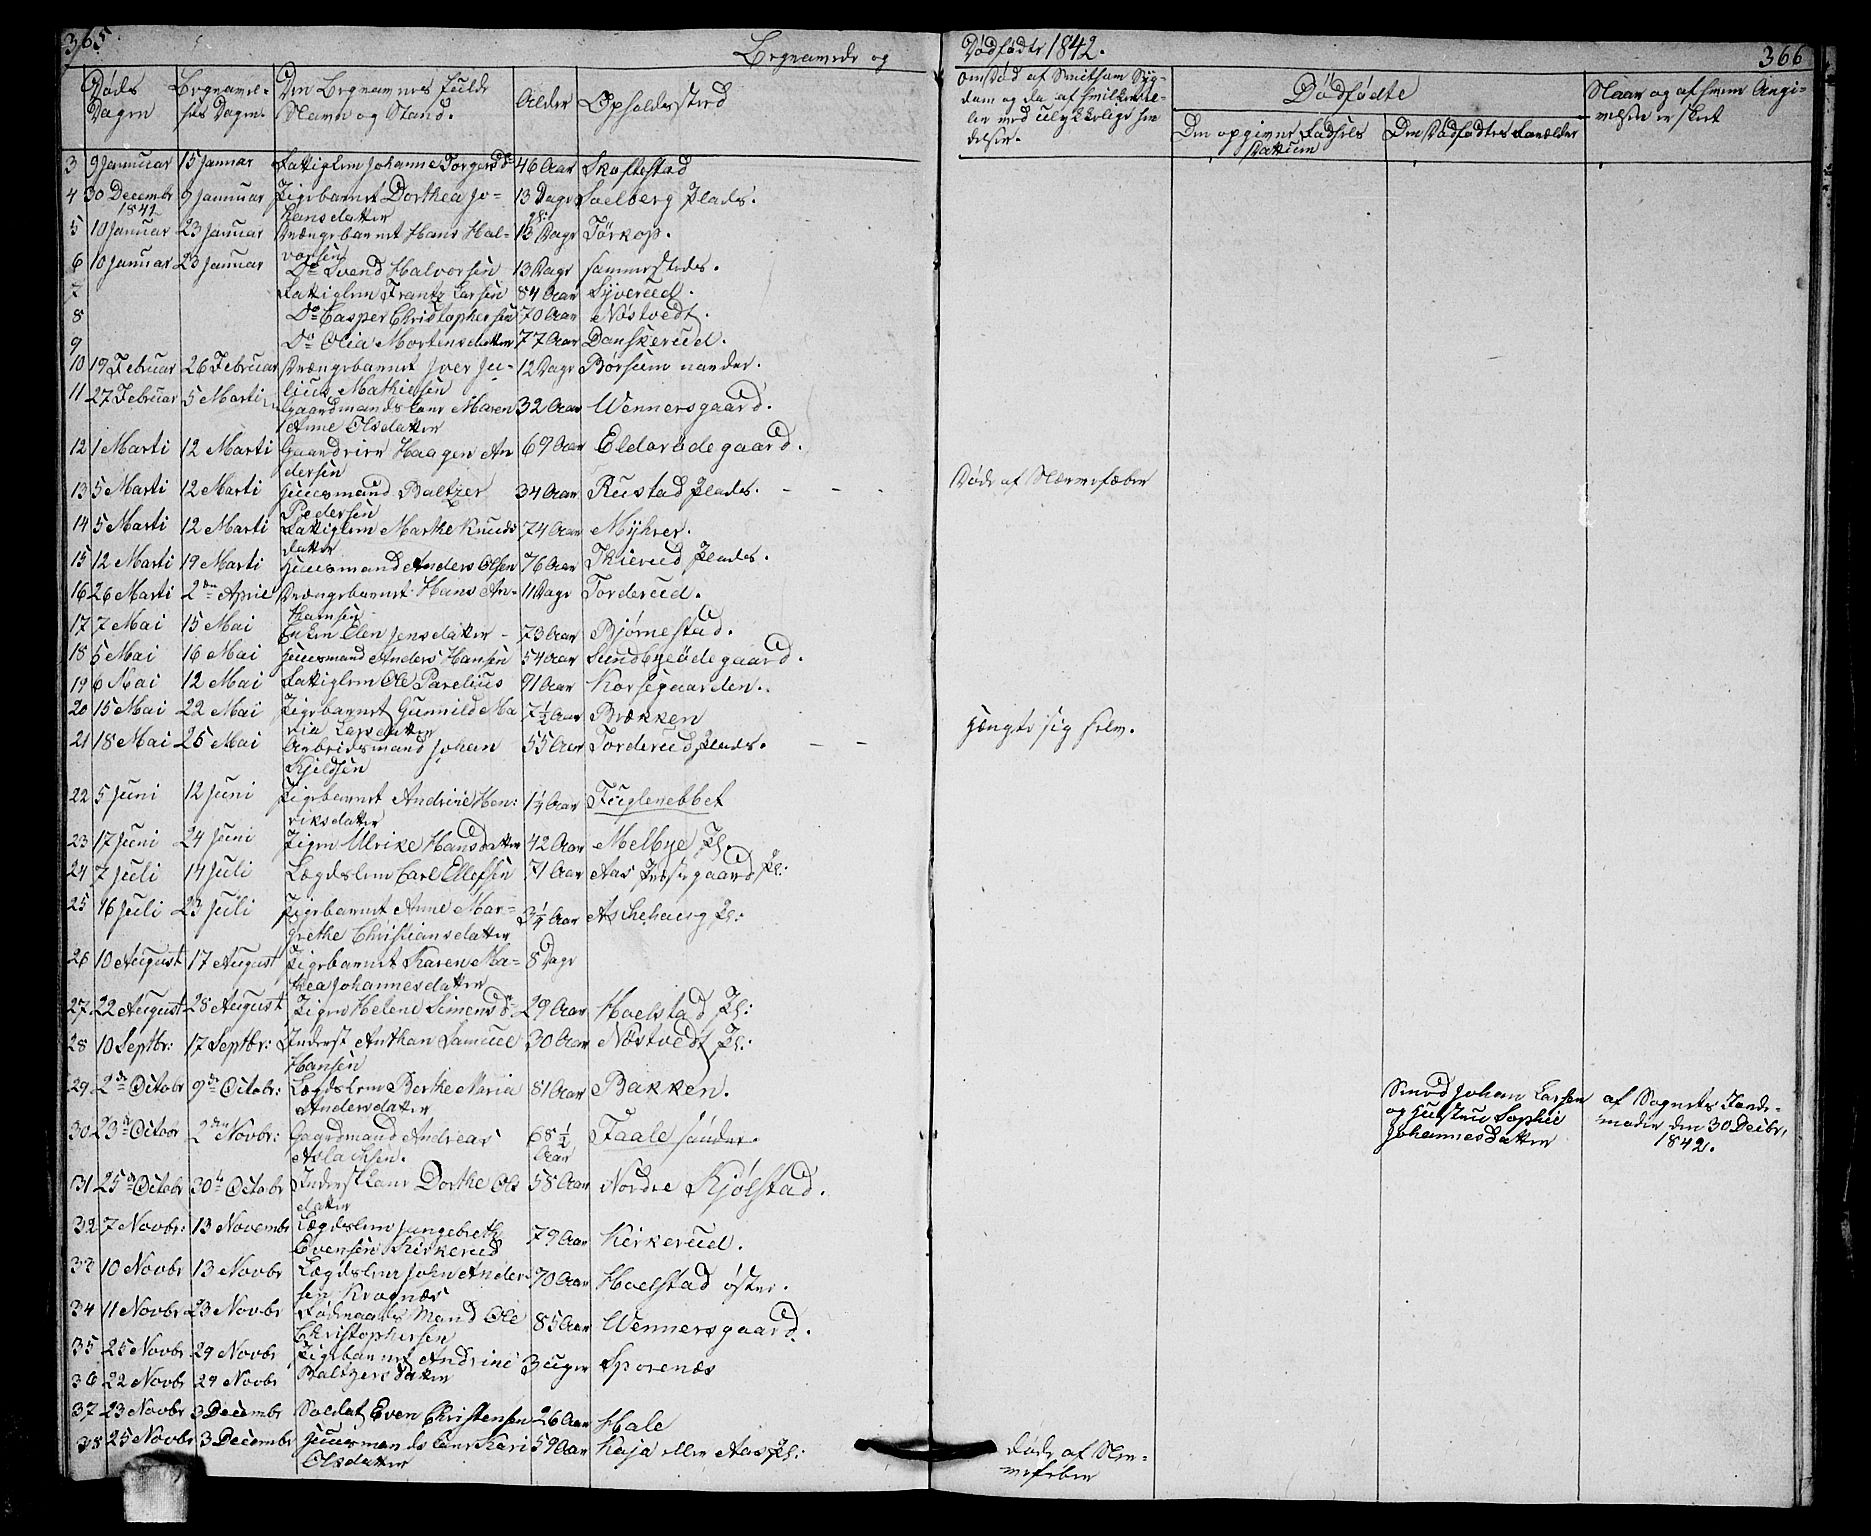 365
Begravede og
Dødfødte 1842.
366
Døds Dagen
Begravelses Dagen.
Den Begravedes fulde Navn og Stand.
Alder
Opholdssted
Om død af Smitsom Sygdom og da af hvilken eller ved ulykkelige hændelser.
Dødfødte
Den opgivne Fødsels Datum
Den Dødfødtes Forældre
Naar og af hvem Angivelsen er skeet
3 9 Januar 15 Januar Lattiglem Johanne Torgersd: 46 Aar Skoftestad
4 30 Decembr 1841 9 Januar Pigebarnet Dorthea Johansdatter 13 Dage Soelberg Plads.
5 10 Januar 23 Januar Drængebarnet Hans Halvorsen 13 Dage Törkop.
6 10 Januar 23 Januar Do Svend Halvorsen 13 Dage sammesteds.
7 Lattiglem Frantz Larsen 84 Aar Syverud.
8 Do Casper Christophersen 70 Aar Nöstvedt.
9 Do Olia Mortensdatter 77 Aar Danskerud.
10 19 Februar 26 Februar Drængebarnet Iver Julius Mathiesen 12 Dage Börsum nordre.
11 27 Februar 5 Marti Gaardmandskone Maren Anne Olsdatter 32 Aar Wennersgaard.
12 1 Marti 12 Marti Gaardeier Haagen Andersen 69 Aar Eldorødegaard.
13 5 Marti 12 Marti Huusmand Baltzer Pedersen 34 Aar Rustad Plads. - - - Döde af Nervefeber
14 5 Marti 12 Marti Lattiglem Marthe Knudsdatter 74 Aar Myhrer.
15 12 Marti 19 Marti Huusmand Anders Olsen 76 Aar Skierud Plads.
16 26 Marti 2den April Drængebarnet Hans An- Hansen 11 Dage Torderud.
17 7 Mai 15 Mai Enken Elen Jensdatter - 73 Aar Bjørnestad.
18 5 Mai 16 Mai Huusmand Anders Hansen 54 Aar Sundbyeødegaard.
19 6 Mai 12 Mai Lattiglem Ole Parelius 91 Aar Korsegaarden.
20 15 Mai 22 Mai Pigebarnet Gunnild Maria Larsdatter 7½ Aar Brækken
21 18 Mai 25 Mai Arbeidsmand Johan Kjeldsen 55 Aar Torderud Plads. - - Hængte sig selv.
22 5 Juni 12 Juni Pigebarnet Andrine Henriksdatter 1¼ Aar Fuglenebbet
23 17 Juni 24 Juni Pigen Ulrike Hansdatter 42 Aar Melbye Pl.
24 7 Juli 14 Juli Lægdslem Carl Ellefsen 71 Aar Aas Præstegaard Pl:
25 16 Juli 23 Juli Pigebarnet Anne Margrethe Christiansdatter 3¼ Aar Aschehaug Pl:
26 10 August 17 August Pigebarnet Karen Mathea Johannesdatter 8 Dage
27. 22 August 28 August Pigen Helene Simensd: 29 Aar Hoelstad Pl:
28 10 Septbr: 17 Septbr: Inderst Anthon Samuel Hansen 30 Aar Nøstvedt Pl:
29 2den Octobr 9de Octobr: Lægdslem Berthe Maria Andersdatter 81 Aar Bakken.
Smed Johan Larsen og Hustrue Sophie Johannesdatter
af Sognets Jordemoder den 30 Decbr, 1842.
30 23de Octobr 2den Novbr: Gaardmand Andreas Aslachsen. 68½ Aar Faale søndre.
31 25de Octobr 30te Octobr Inderstkone Dorthe Olsdatter 58 Aar Nordre Kjølstad.
32 7 Novbr: 13 Novembr Lægdslem Jungebreth Evensen Kirkerud 79 Aar Kirkerud.
33 10 Novbr 13 Novbr Lægdslem John Andersen Kragnæs 70 Aar Hoelstad øster.
34 11 Novbr 23 Novbr Föderaads Mand Ole Christophersen 85 Aar Wennersgaard.
35 25 Novbr 29 Novbr Pigebarnet Andrine Baltzersdatter 3 uger Sporenæs
36 22 Novbr 29 Novbr
37 23 Novbr 3 Decembr Soldat Even Christensen 26 Aar Hale
38 25 Novbr 3 Decembr Huusmandskone Kari Olsdatter 59 Aar Kaja eller Aas Pl: Døde af Nervefeber